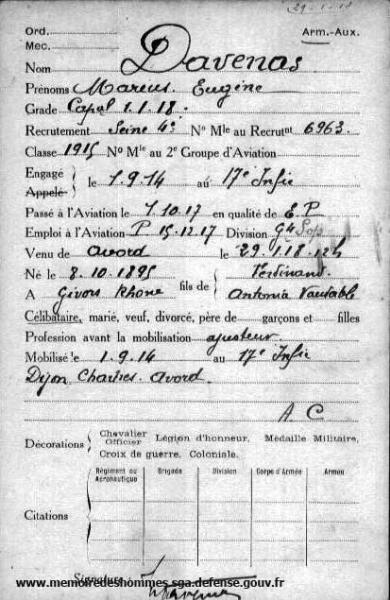 29-1-18
Ord. Arm.-Aux.
Mec.
Nom Davenas
Prénoms Marius Eugène
Grade Capal 1.1.18.
Recrutement Seine 4e No Mle au Recrutnt 6963.
Classe 1915 No Mle au 2e Groupe d'Aviation
Engagé
Appelé } le 1.9.14 au 17e Infie
Passé à l'Aviation le 7.10.17 en qualité de E.P
Emploi à l'Aviation P 15.12.17 Division G4 Sop
Venu de avord le 29.1.18.
Né le 8.10.1895 fils de { Ferdinand.
A Givors Rhone Antonia
Célibataire, marié, veuf, divorcé, père de garçons et filles
Profession avant la mobilisation ajusteur.
Mobilisé le 1.9.14 au 17e Infie
Dijon. Chartres. Avord.
A C
Décorations { Chevalier Officier Légion d'honneur, Médaille Militaire,
Croix de guerre, Coloniale.
Citations { Régiment ou Aéronautique Brigade Division Corps d'Armée Armée
Signature
www.memoiredeshommes.sga.defense.gouv.fr